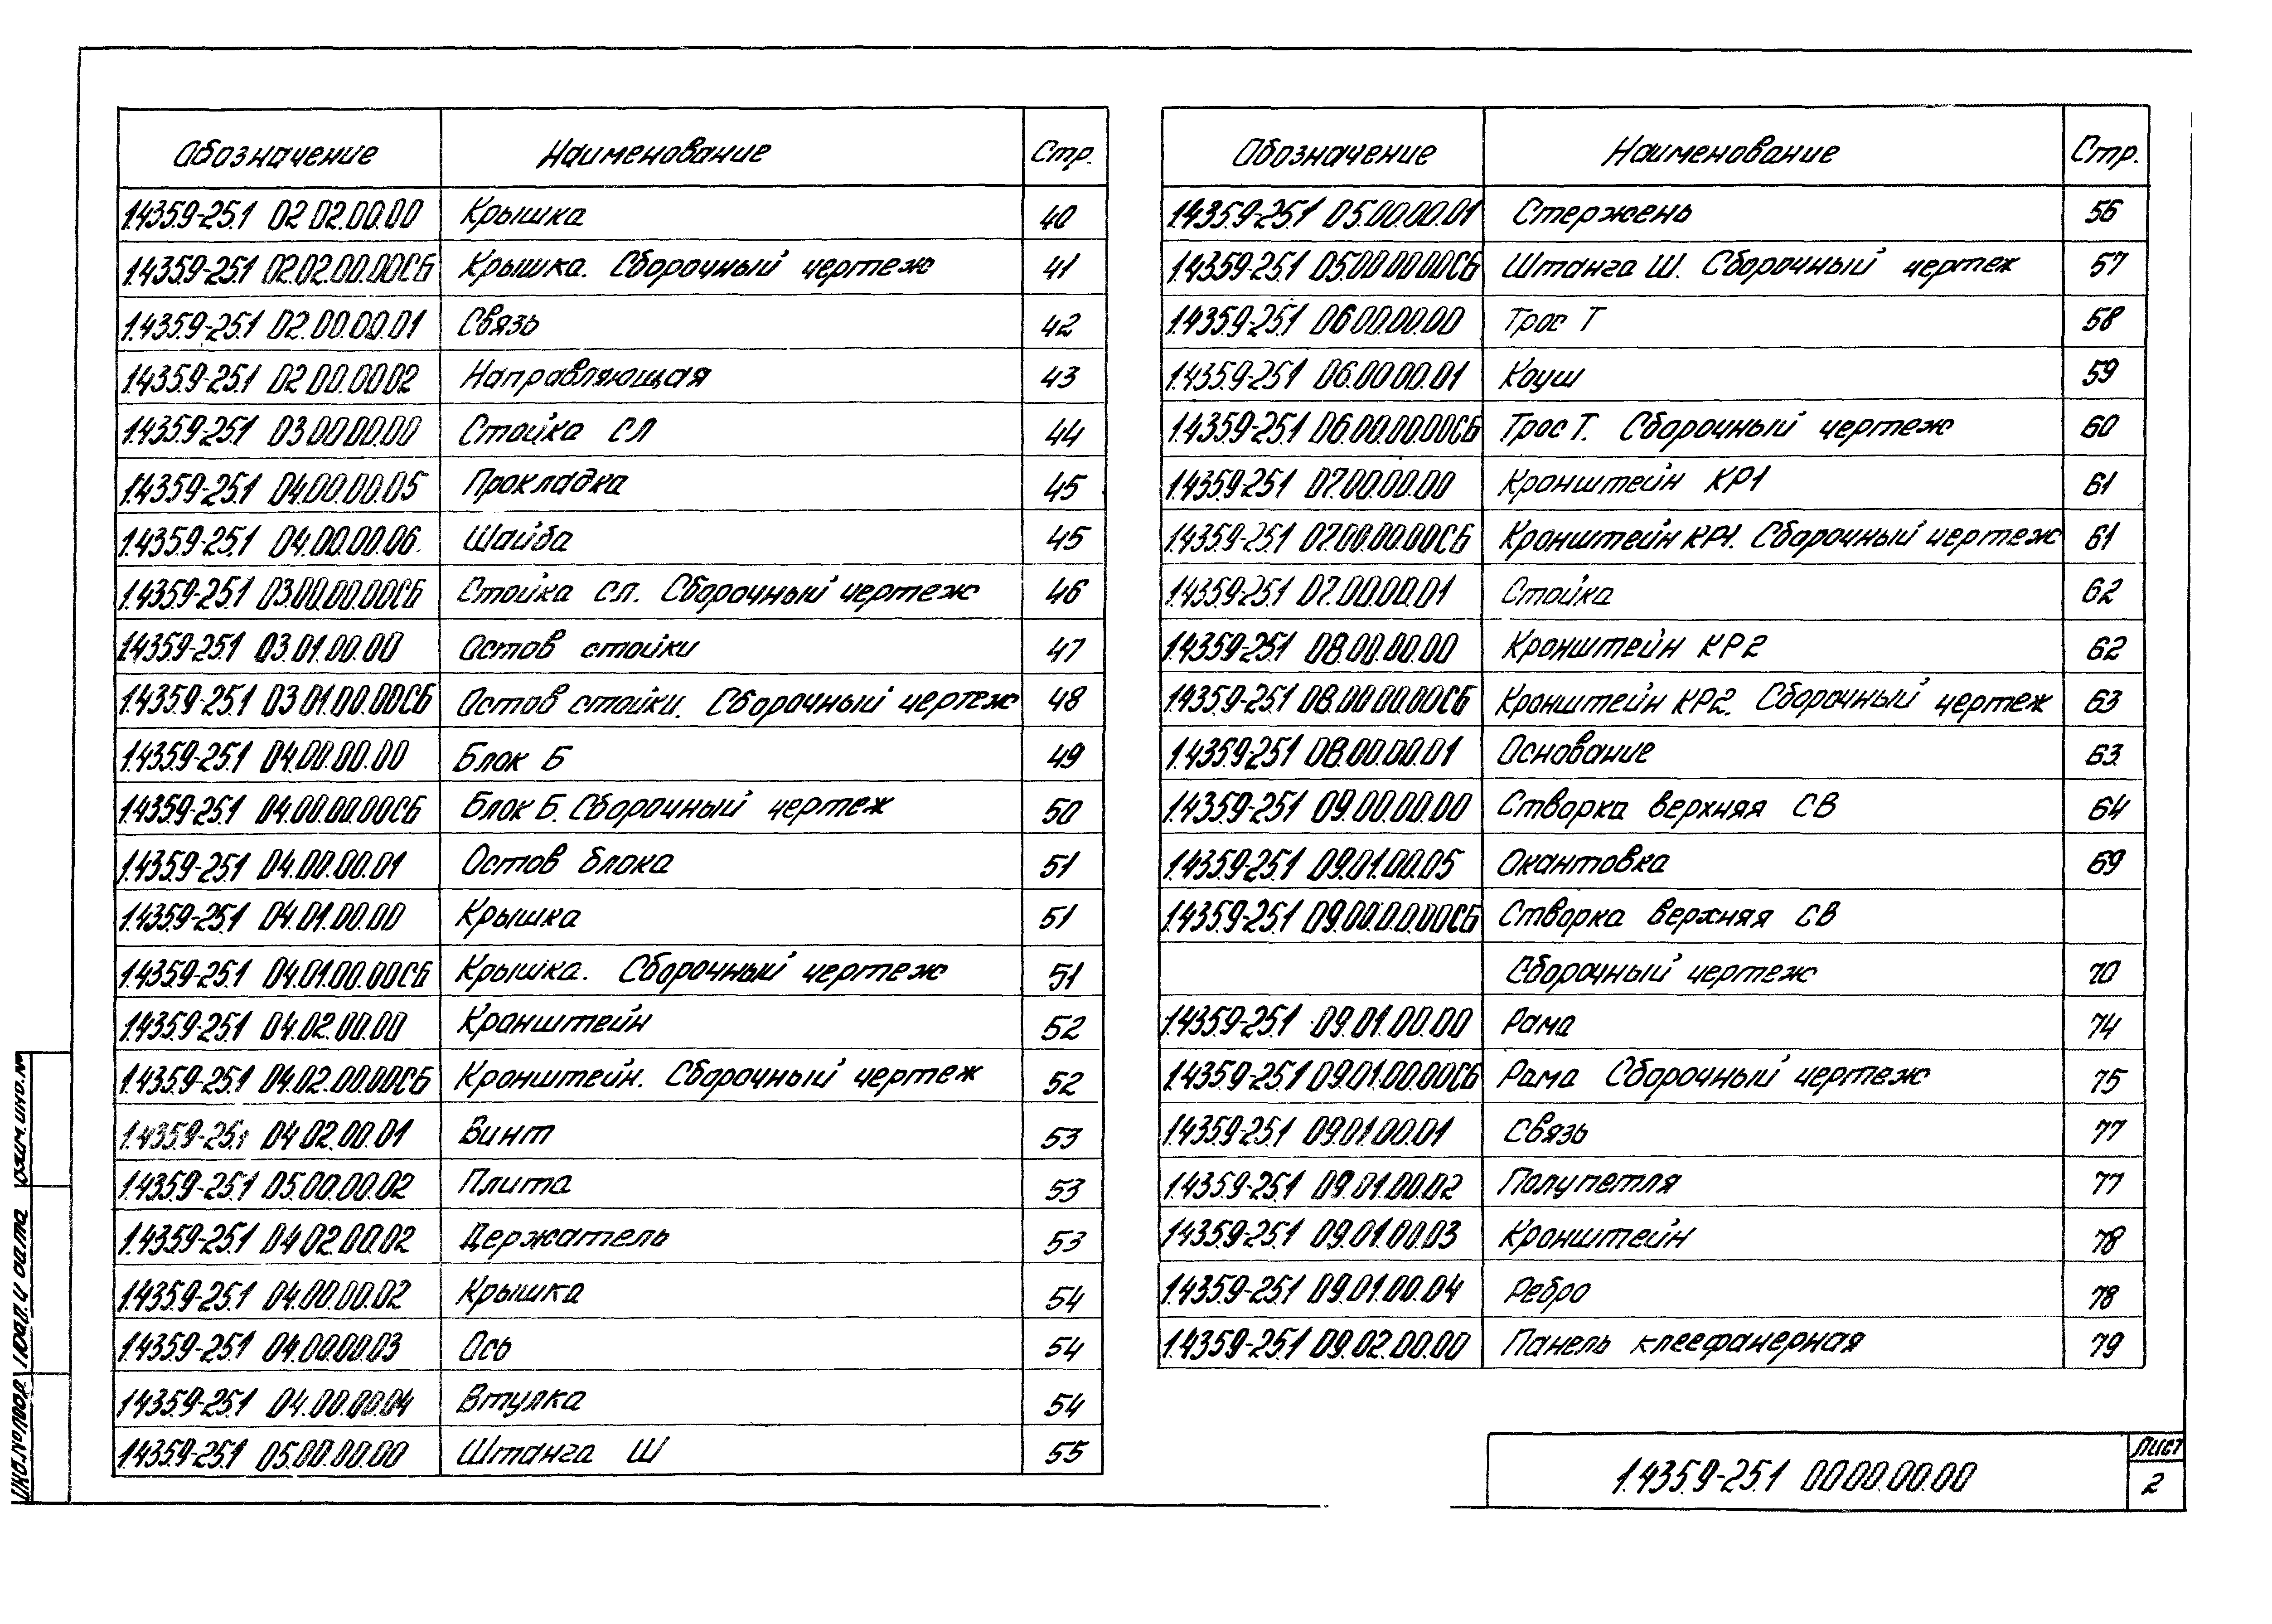 Обозначение Наименование Стр.
1.435.9-25.1 02.02.00.00 Крышка 40
1.435.9-25.1 02.02.00.00СБ Крышка. Сборочный чертеж 41
1.435.9-25.1 02.00.00.01 Связь 42
1.435.9-25.1 02.00.00.02 Направляющая 43
1.435.9-25.1 03.00.00.00 Стойка СЛ 44
1.435.9-25.1 04.00.00.05 Прокладка 45
1.435.9-25.1 04.00.00.06. Шайба 45
1.435.9-25.1 03.00.00.00СБ Стойка СЛ. Сборочный чертеж 46
1.435.9-25.1 03.01.00.00 Остов стойки 47
1.435.9-25.1 03.01.00.00СБ Остов стойки. Сборочный чертеж 48
1.435.9-25.1 04.00.00.00 Блок Б 49
1.435.9-25.1 04.00.00.00СБ Блок Б. Сборочный чертеж 50
1.435.9-25.1 04.00.00.01 Остов блока 51
1.435.9-25.1 04.01.00.00 Крышка 51
1.435.9-25.1 04.01.00.00СБ Крышка. Сборочный чертеж 51
1.435.9-25.1 04.02.00.00 Кронштейн 52
1.435.9-25.1 04.02.00.00СБ Кронштейн. Сборочный чертеж 52
1.435.9-25.1 04.02.00.01 Винт 53
1.435.9-25.1 05.00.00.02 Плита 53
1.435.9-25.1 04.02.00.02 Держатель 53
1.435.9-25.1 04.00.00.02 Крышка 54
1.435.9-25.1 04.00.00.03 Ось 54
1.435.9-25.1 04.00.00.04 Втулка 54
1.435.9-25.1 05.00.00.00 Штанга Ш 55
Обозначение Наименование Стр.
1.435.9-25.1 05.00.00.01 Стержень 56
1.435.9-25.1 05.00.00.00СБ Штанга Ш. Сборочный чертеж 57
1.435.9-25.1 06.00.00.00 Трос Т 58
1.435.9-25.1 06.00.00.01 Коуш 59
1.435.9-25.1 06.00.00.00СБ Трос Т. Сборочный чертеж 60
1.435.9-25.1 07.00.00.00 Кронштейн КР1 61
1.435.9-25.1 07.00.00.00СБ Кронштейн КР1. Сборочный чертеж 61
1.435.9-25.1 07.00.00.01 Стойка 62
1.435.9-25.1 08.00.00.00 Кронштейн КР2 62
1.435.9-25.1 08.00.00.00СБ Кронштейн КР2. Сборочный чертеж 63
1.435.9-25.1 08.00.00.01 Основание 63
1.435.9-25.1 09.00.00.00 Створка верхняя СВ 64
1.435.9-25.1 09.01.00.05 Окантовка 69
1.435.9-25.1 09.00.00.00СБ Створка верхняя СВ
Сборочный чертеж 70
1.435.9-25.1 09.01.00.00 Рама 74
1.435.9-25.1 09.01.00.00СБ Рама Сборочный чертеж 75
1.435.9-25.1 09.01.00.01 Связь 77
1.435.9-25.1 09.01.00.02 Полупетля 77
1.435.9-25.1 09.01.00.03 Кронштейн 78
1.435.9-25.1 09.01.00.04 Ребро 78
1.435.9-25.1 09.02.00.00 Панель клеефанерная 79
1.435.9-25.1 00.00.00.00
Лист
2
Взам.инв.№
Подп. и дата
Инв.№ подл.